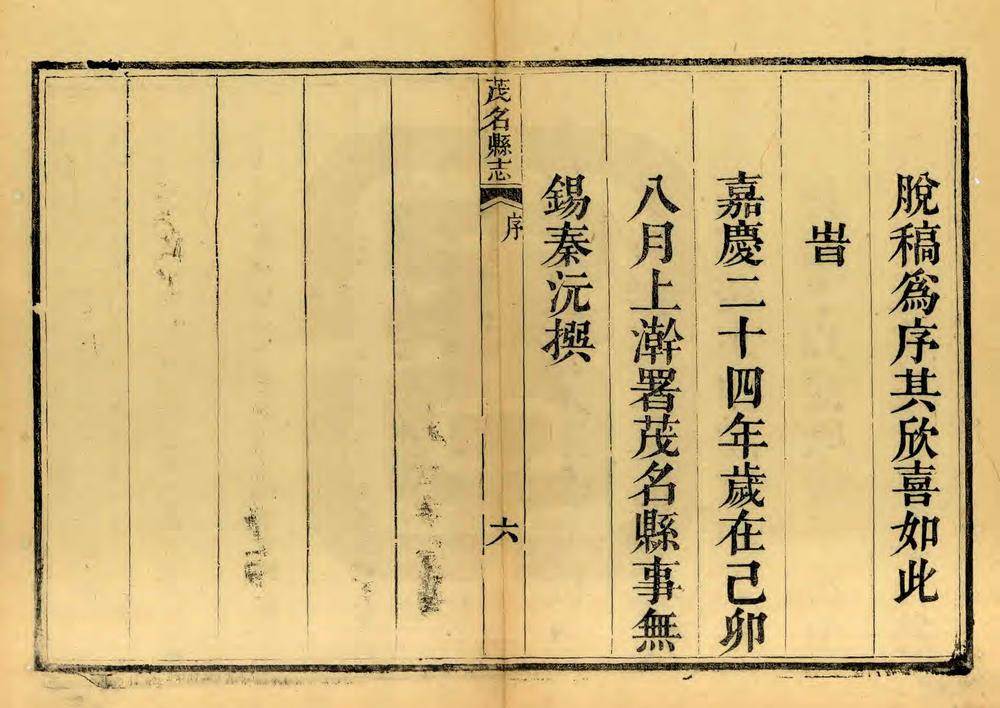 脫稿爲序其欣喜如此
旹
嘉慶二十四年歲在己卯
八月上澣署茂名縣事無
錫秦沅撰
茂名縣志
序
六